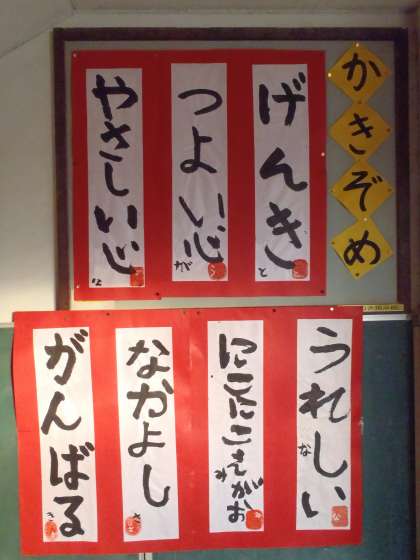 かきぞめ
げんき
と
つよい心
が
やさしい心
うれしい
な
にこにこえがお
み
なかよし
さ
がんばる
き